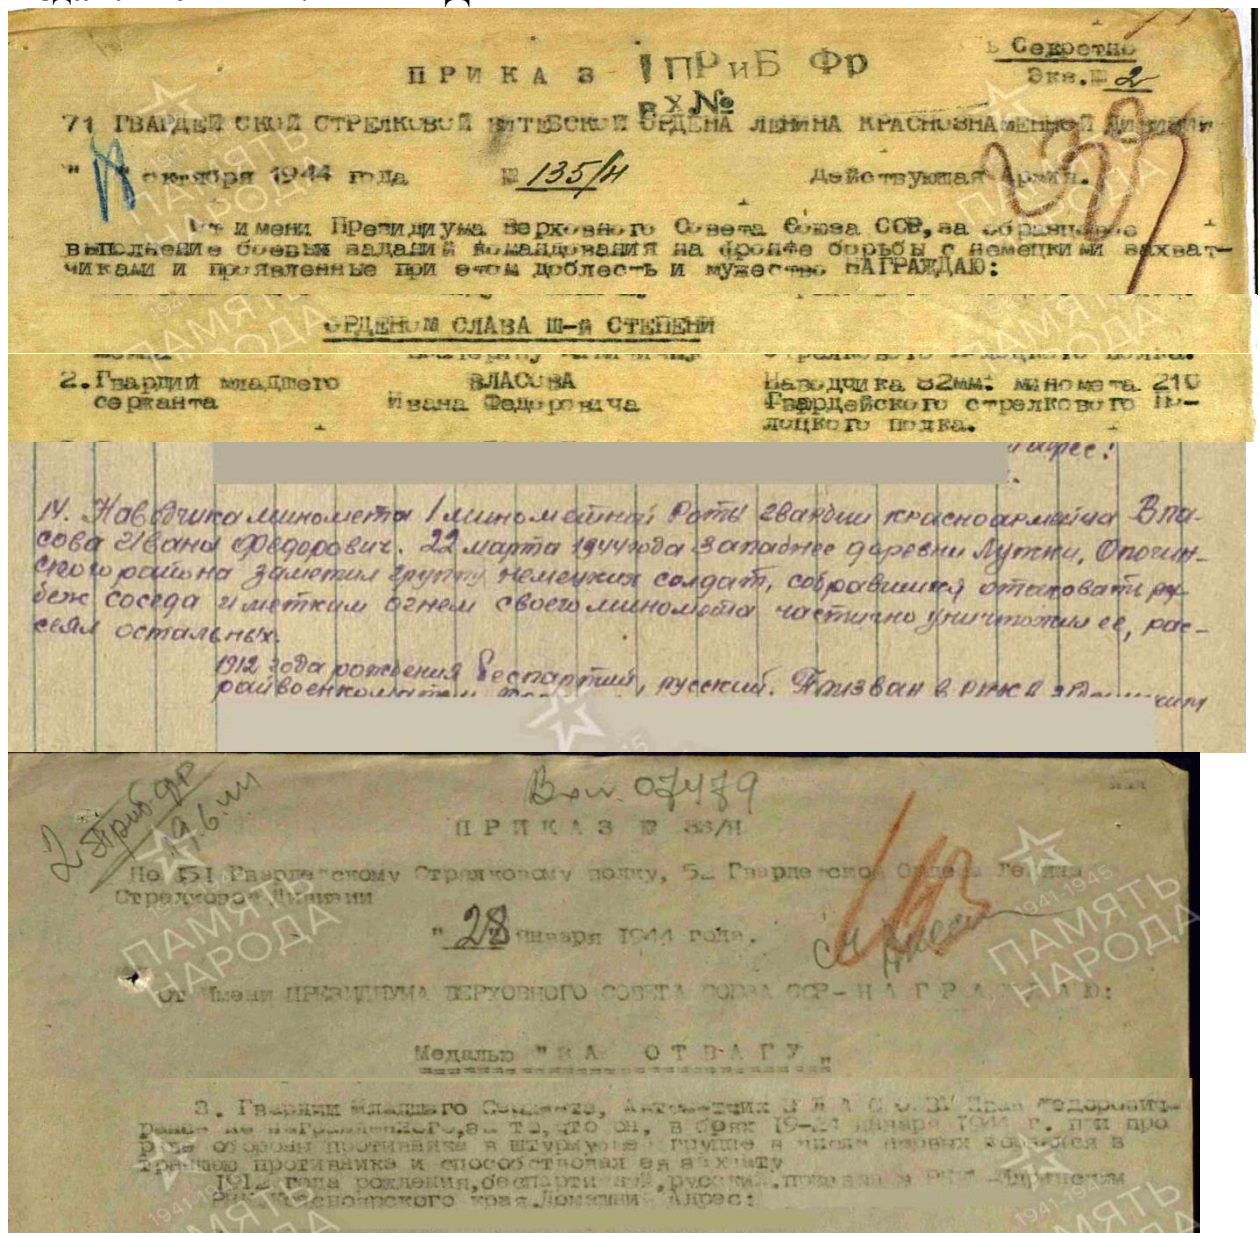 Секретно
ПРИКАЗ 1 ПРиБ Фр
Экз.№ 2
ВХ№
71 ГВАРДЕЙСКОЙ СТРЕЛКОВОЙ ВИТЕБСКОЙ ОРДЕНА ЛЕНИНА КРАСНОЗНАМЕННОЙ ДИВИЗИИ
" " октября 1944 года № 135/н Действующая Армия.
От имени Президиума Верховного Совета Союза ССР, за образцовое
выполнение боевых заданий командования на фронте борьбы с немецкими захват-
чиками и проявленные при этом доблесть и мужество НАГРАЖДАЮ:
ОРДЕНОМ СЛАВА III-й СТЕПЕНИ
2. Гвардии младшего ВЛАСОВА Наводчика 82мм. миномета 210
сержанта Ивана Федоровича Гвардейского стрелкового По-
лоцкого полка.
адрес:
14. Наводчика миномета 1 минометной Роты гвардии красноармейца Вла-
сова Ивана Федорович. 22 марта 1944 года западнее деревни Лутки, Опочин-
ского района заметил группу немецких солдат, собравшихся атаковать ру-
беж соседа и метким огнем своего миномета частично уничтожил ее, рас-
сеял остальных.
1912 года рождения беспартийный, русский. Призван в РККА
райвоенкоматом
2 Приб фр Вхи. 07479
19.6.44
ПРИКАЗ № 33/Н
По 151 Гвардейскому Стрелковому полку, 52 Гвардейской Ордена Ленина
Стрелковой Дивизии
" 28 " января 1944 года.
От Имени ПРЕЗИДИУМА ВЕРХОВНОГО СОВЕТА СОЮЗА ССР - НАГРАЖДАЮ:
Медалью "ЗА ОТВАГУ"
3. Гвардии Младшего Сержанта, Автоматчик ВЛАСОВА Иван Федорович-
ранее не награжденного, за то, что он, в боях 19-21 января 1944 г. при про
рыве обороны противника в штурмующей группе в числе первых ворвался в
траншею противника и способствовал ея захвату
1912 года рождения, беспартийный, русский, призван в РККА
РВК Красноярского края. Домашний Адрес:
ПАМЯТЬ
НАРОДА
1941-1945